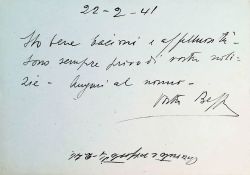 22-2-41
Sto bene bacioni e affettuosità-
Sono sempre privo di vostre noti-
zie - Auguri al nonno -
Vostro Beppe